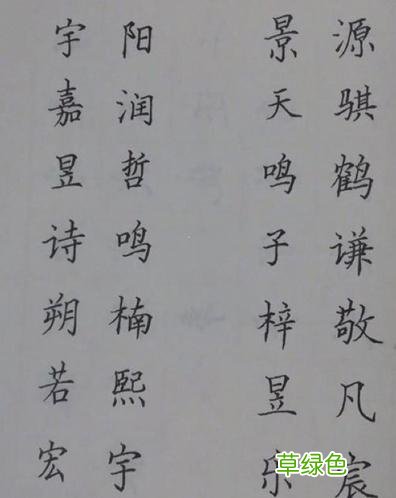 源骐鹤谦敬凡宸
景天鸣子梓昱乐
阳润哲鸣楠熙宇
宇嘉昱诗朔若宏
草绿色